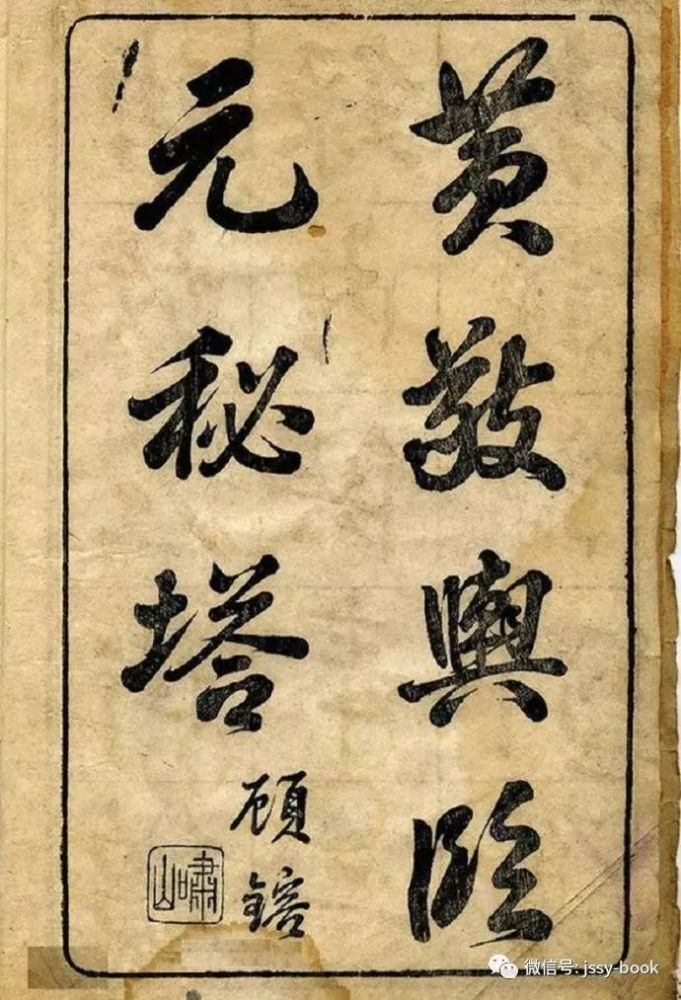 黄敬輿臨
元秘塔
頋鎔
嘯山
微信号: jssy-book